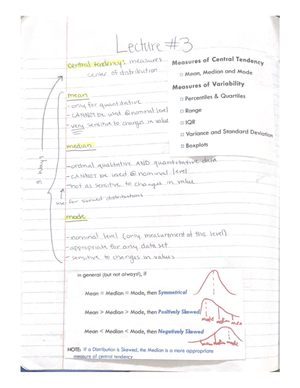 Lecture #3
central tendency: measures
center of distribution
Measures of Central Tendency
Mean, Median and Mode
Measures of Variability
Percentiles & Quartiles
Range
IQR
Variance and Standard Deviation
Boxplots
mean
- only for quantitative
- CANNOT be used @ nominal level
- very sensitive to changes in value
median
- ordinal qualitative AND quantitative data
- CANNOT be used @ nominal level
- not as sensitive to changes in value
for skewed distributions
mode
- nominal level (only measurement at this level)
- appropriate for any data set
- sensitive to changes in values
In general (but not always), if
Mean = Median = Mode, then Symmetrical
Mean > Median > Mode, then Positively Skewed
mode median mean
Mean < Median < Mode, then Negatively Skewed
mean median mode
NOTE: If a Distribution is Skewed, the Median is a more appropriate
measure of central tendency